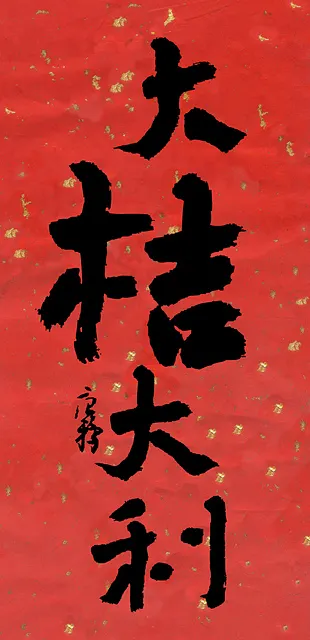 大桔大利